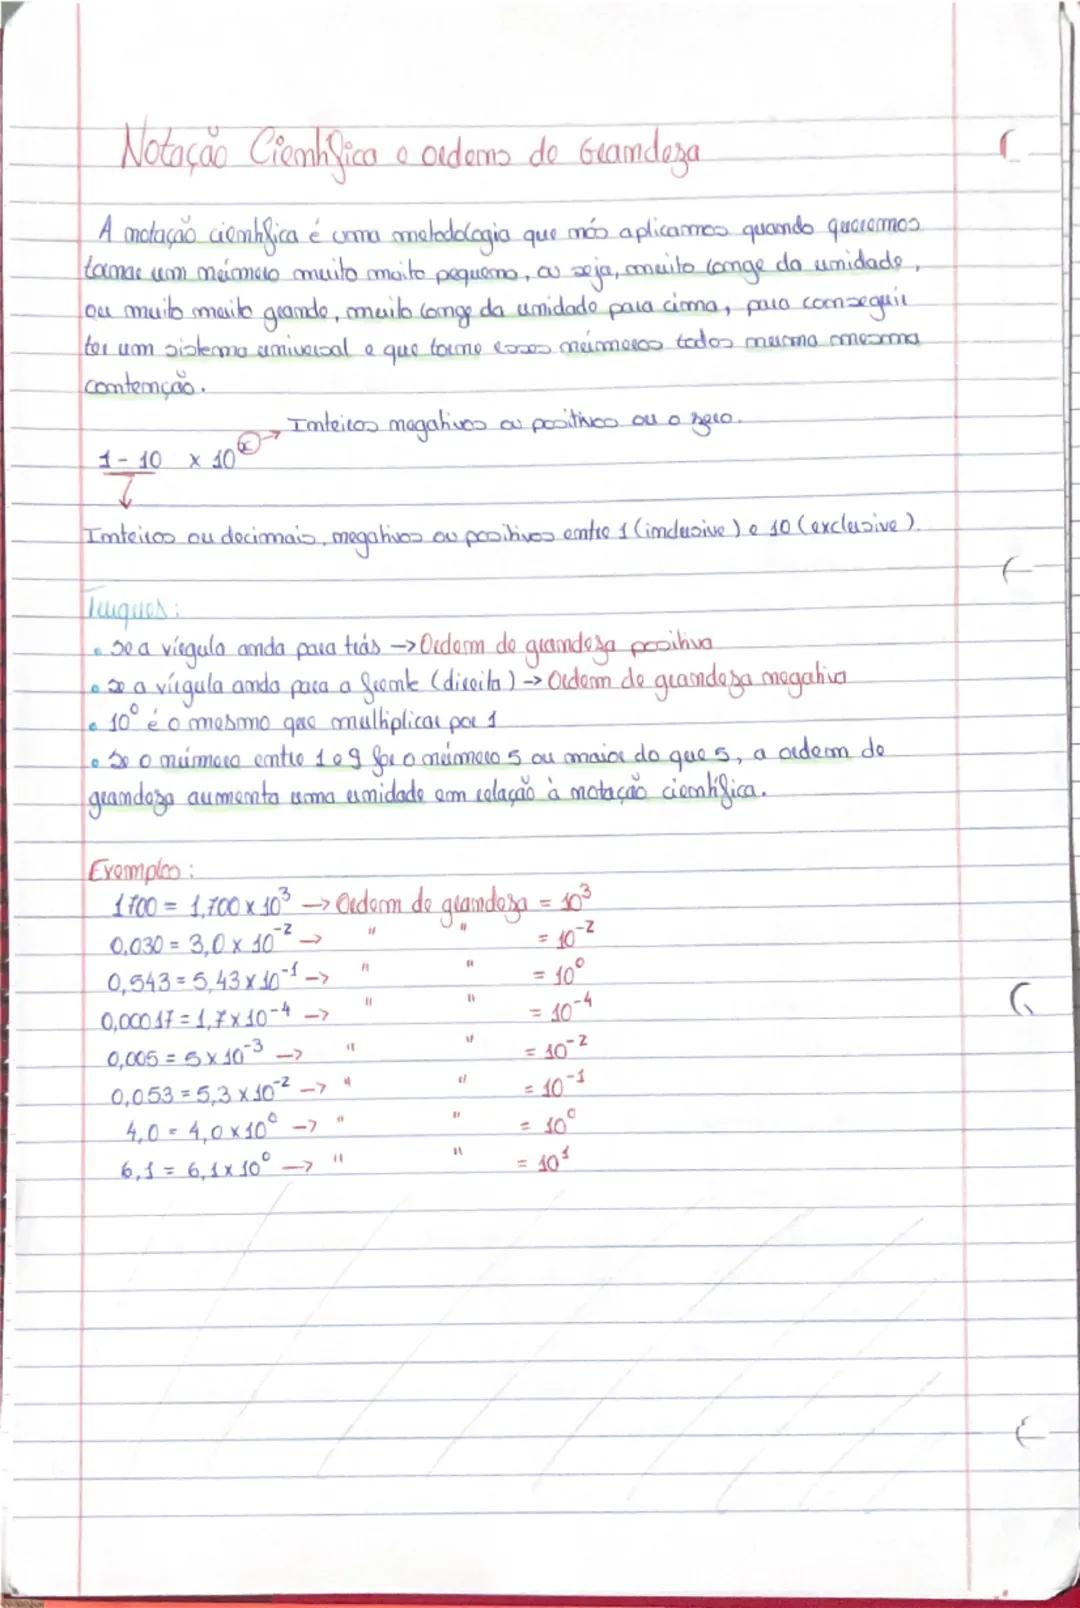 Notação Científica e ordens de Grandeza
A notação científica é uma metodologia que nós aplicamos quando queremos
tornar um número muito muito pequeno, ou seja, muito longe da unidade,
ou muito muito grande, muito longe da unidade para cima, para conseguir
ter um sistema universal e que torne esses números todos numa mesma
contenção.
Inteiros negativos ou positivos ou o zero.
1 - 10 x 10ˣ
Inteiros ou decimais, negativos ou positivos entre 1 (inclusive) e 10 (exclusive).
Truques:
• Se a vírgula anda para trás → Ordem de grandeza positiva
• Se a vírgula anda para a frente (direita) → Ordem de grandeza negativa
• 10⁰ é o mesmo que multiplicar por 1
• Se o número entre 1 e 9 for o número 5 ou maior do que 5, a ordem de
grandeza aumenta uma unidade em relação à notação científica.
Exemplos:
1700 = 1,700 x 10³ → Ordem de grandeza = 10³
0,030 = 3,0 x 10⁻² → " " = 10⁻²
0,543 = 5,43 x 10⁻¹ → " " = 10⁰
0,00017 = 1,7 x 10⁻⁴ → " " = 10⁻⁴
0,005 = 5 x 10⁻³ → " " = 10⁻²
0,053 = 5,3 x 10⁻² → " " = 10⁻¹
4,0 = 4,0 x 10⁰ → " " = 10⁰
6,1 = 6,1 x 10⁰ → " " = 10¹